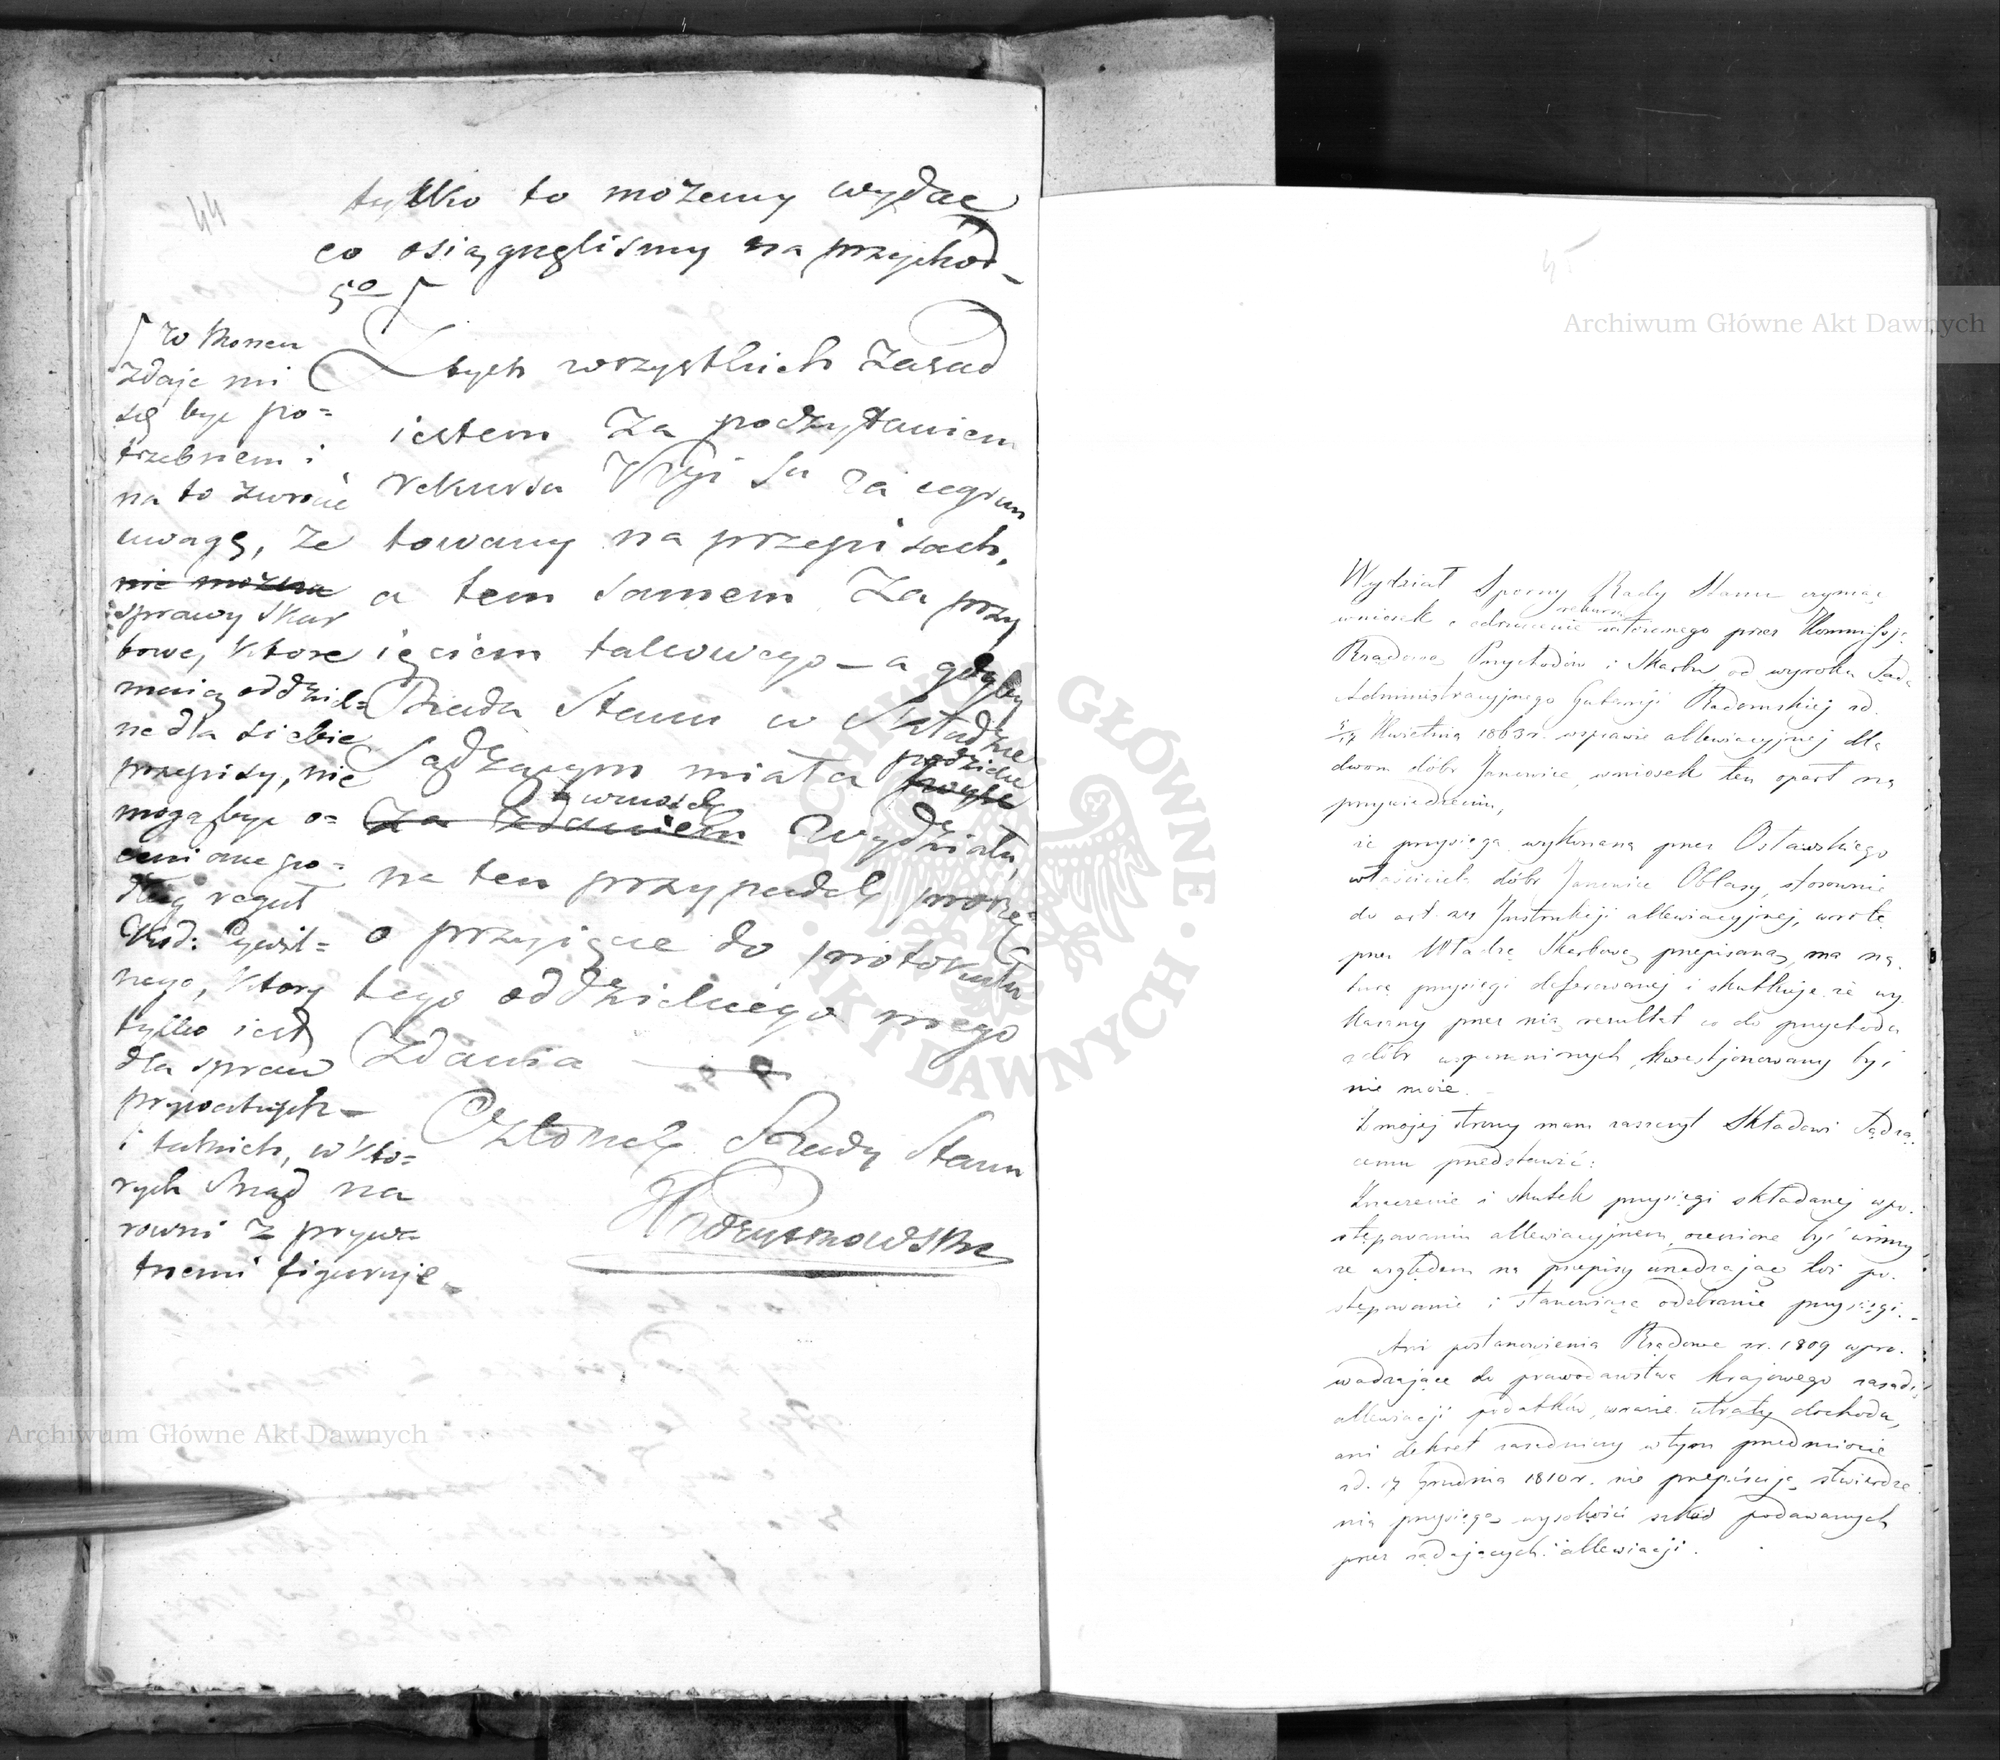 44
tylko to możemy wydać
co osiągnęliśmy na przychod-
5o ſ
Z tych wszystkich zasad
iestem za poczytaniem
rekursu Kryi Su za
towany na przepisach,
a tem samem za przy
ięciem takowego – a gdyby
Rada Stanu w Składzie
Sądzącym miała podzielić
wniosek
za zdaniem Wydziału,
na ten przypadek proszę
o przyięcie do protokułu
tego oddzielnego mego
zdania
Członek Rady Stanu
ſ w Koncu
zdaje mi
się być po=
trzebnem i
na to zwrócić
uwagę, że
nie można
sprawy Skar
bowe, które
maią oddziel=
ne dla siebie
przepisy, nie
mogą być o=
cenione po=
dług reguł
Kod: Cywil=
nego, który
tylko iest
dla spraw
prywatnych –
i takich, w któ=
rych Rząd na
rowni z prywa
tnemi figuruje
45
Wydział Sporny Rady Stanu czyniąc
rekursu
wniosek o odrzucenie założonego przez Kommissję
Rządową Przychodów i Skarbu, od wyroku Sądu
Administracyjnego Gubernji Radomskiej od
5/17 Kwietnia 1863 r. w sprawie allewiacyjnej dla
dwom dóbr Janowice, wniosek ten oparł na
przywiedzeniu,
że przysięga wykonana przez Ostawskiego
właściciela dóbr Janowice Oblasy, stosownie
do art. 24 Instrukcji allewiacyjnej, w rotę
przez Władzę Skarbową przepisaną, ma na-
turę przysięgi deferowanej i skutkuje że wy
kazany przez nią rezultat co do przychodu
z dóbr wspomnionych, kwestjonowany być
nie może.
Z mojej strony mam zaszczyt Składowi Sądzą
cemu przedstawić:
Znaczenie i skutek przysięgi składanej w po-
stępowaniu allewiacyjnem, ocenione być winny
ze względem na przepisy urządzające toż po-
stępowanie i stanowiące odebranie przysięgi.
Ani postanowienia Rządowe z r. 1809 wpro-
wadzające do prawodawstwa krajowego zasadę
allewiacji podatków, w razie utraty dochodu,
ani dekret zasadniczy w tym przedmiocie
od. 17 Grudnia 1810 r. nie przepisują, stwierdze
nia przysięgą wysokości szkód podawanych
przez żądających allewiacji.
Archiwum Główne Akt Dawnych
Archiwum Główne Akt Dawnych
ARCHIWUM GŁÓWNE AKT DAWNYCH